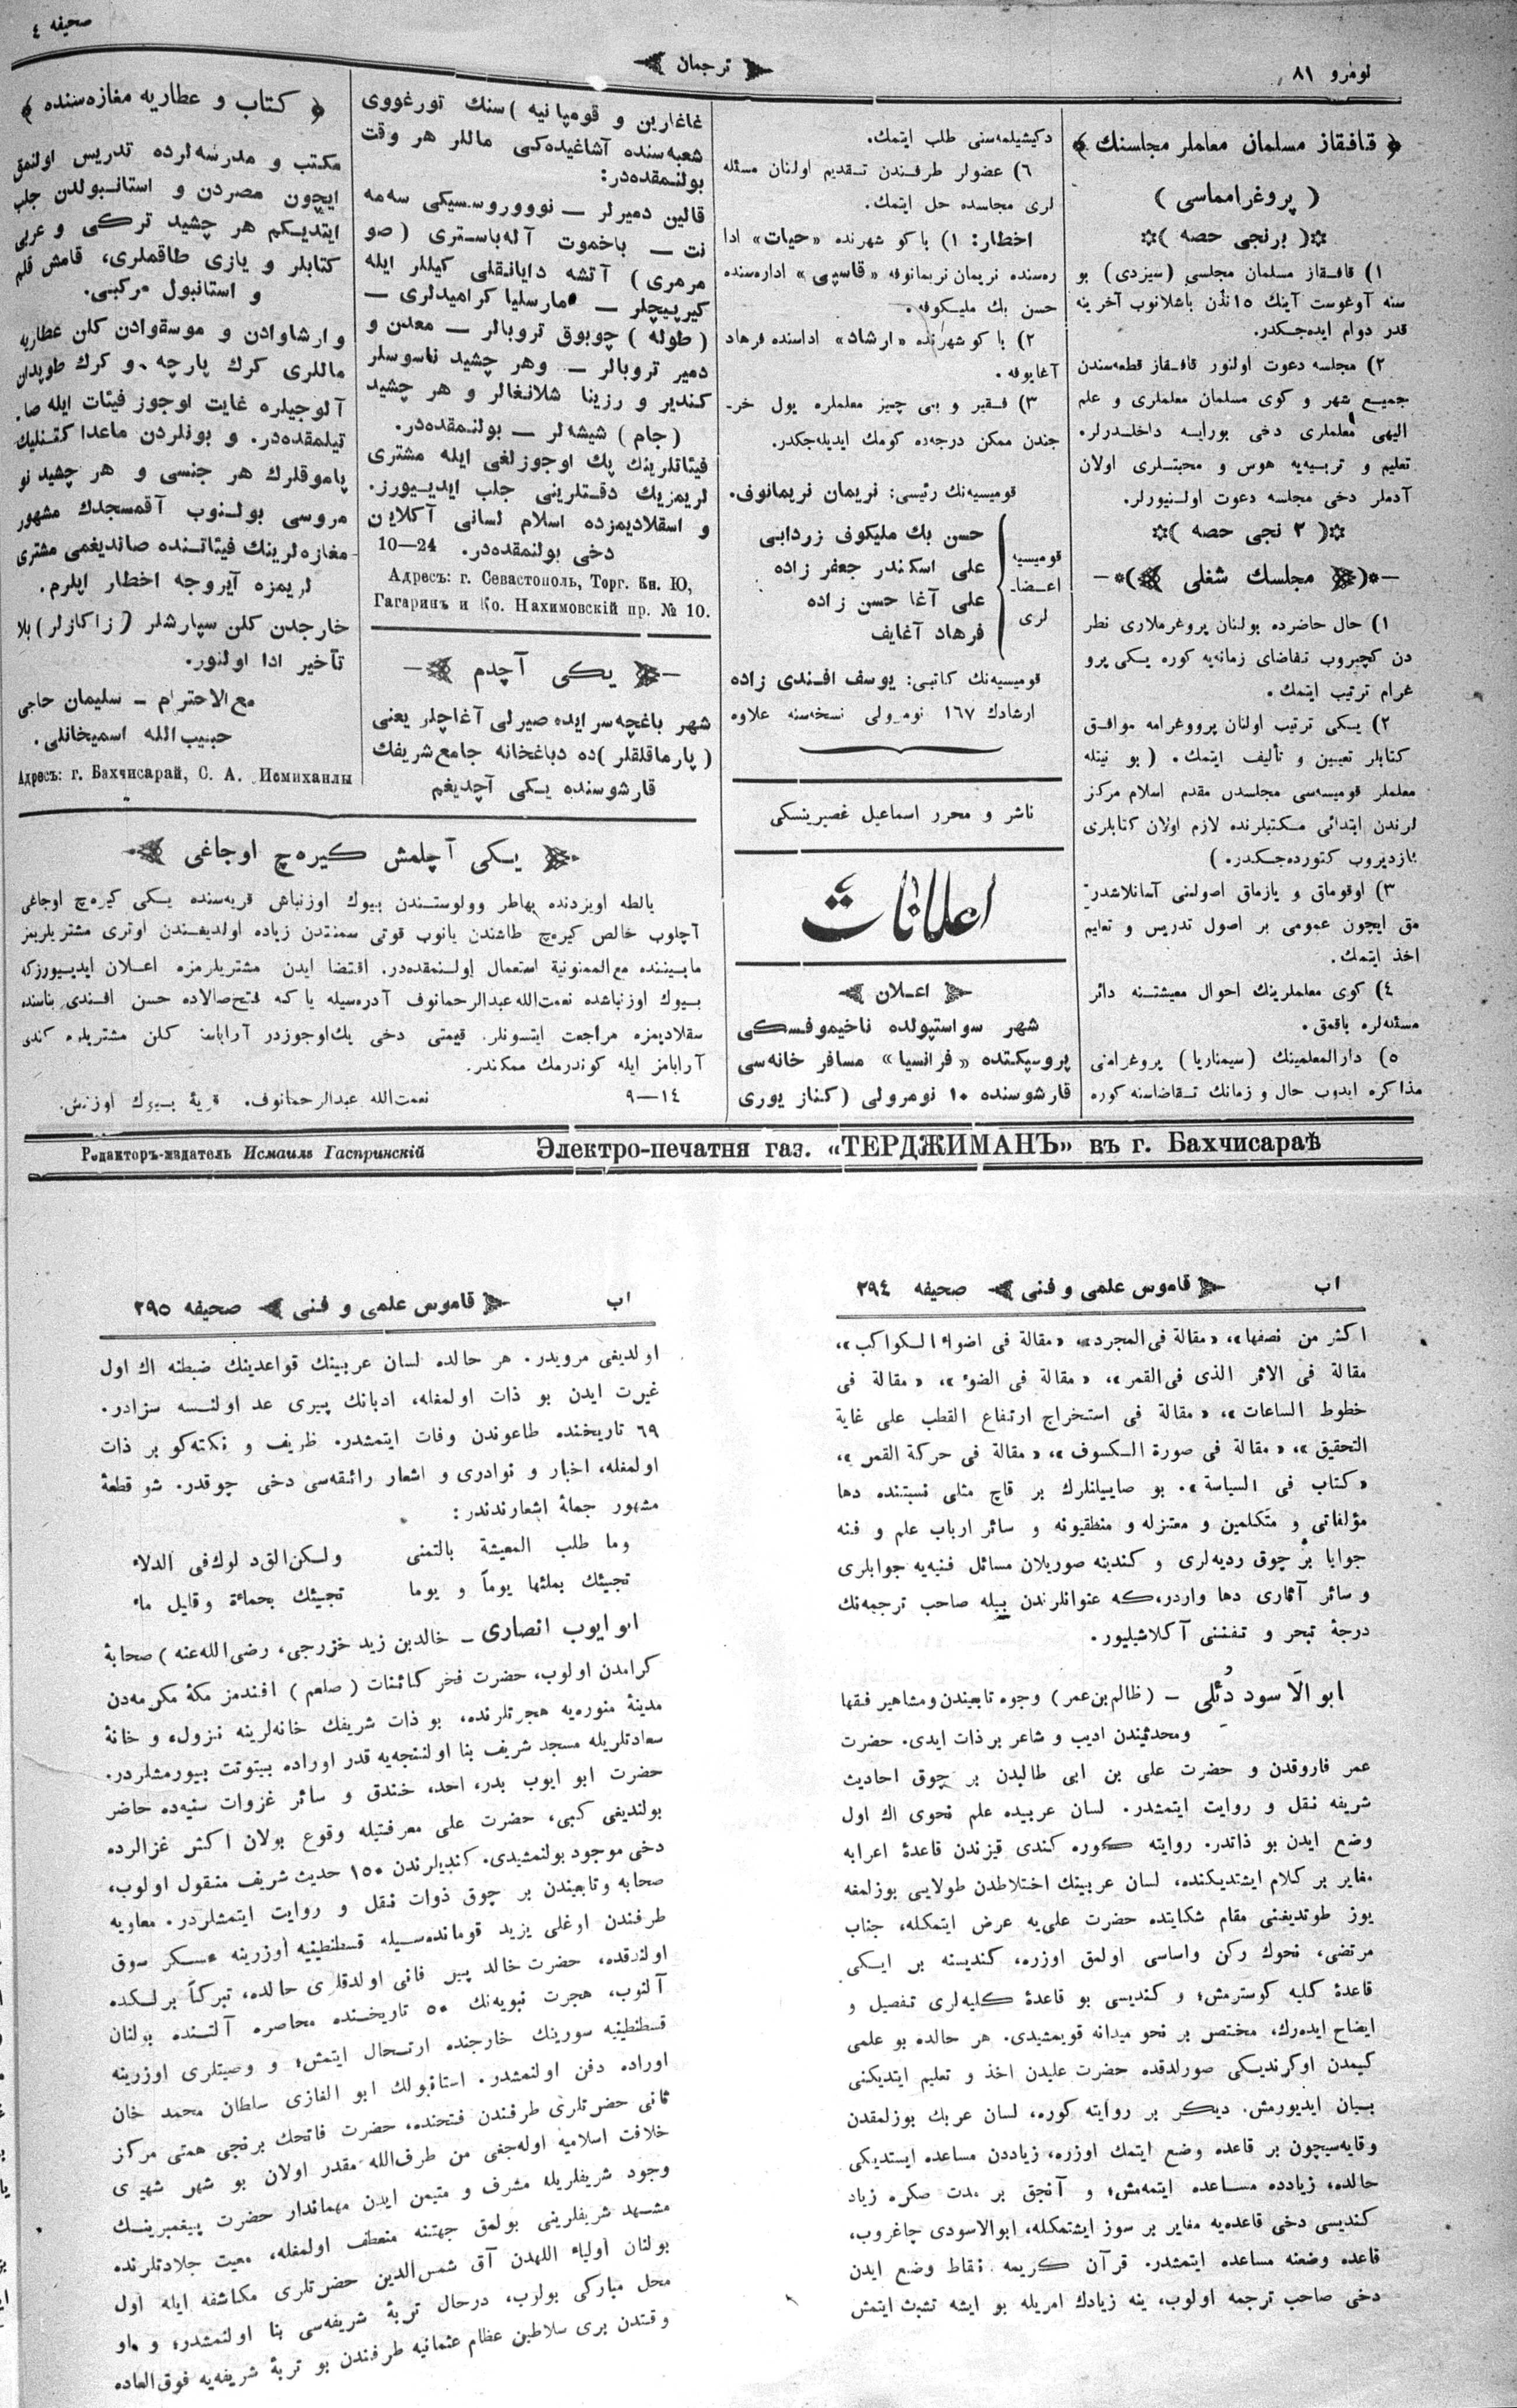 صحیفه ٤
ترجمان
نومرو ٨١
﴿ قافقاز مسلمان معلملر مجلسنك ﴾
( پروغرامماسی )
۞( برنجی حصه )۞
١) قافقاز مسلمان مجلسی (سیزدی) بو
سنه آوغوست آینك ١٥ نڭدن باشلانوب آخرینه
قدر دوام ایده‌جكدر.
٢) مجلسه دعوت اولنور قافقاز قطعه‌سندن
جمیع شهر و كوی مسلمان معلملری و علم
الیهی معلملری دخی بورایه داخلدرلر.
تعلیم و تربیه‌یه هوس و محبتلری اولان
آدملر دخی مجلسه دعوت اولنیورلر.
۞( ٢ نجی حصه )۞
—•( مجلسك شغلی )•—
١) حال حاضرده بولنان پروغرملاری نظر
دن كچیروب تقاضای زمانه‌یه كوره یكی پرو
غرام ترتیب ایتمك.
٢) یكی ترتیب اولنان پرووغرامه موافق
كتابلر تعیین و تألیف ایتمك. ( بو نیتله
معلملر قومیسه‌سی مجلسدن مقدم اسلام مركز
لرندن ابتدائی مكتبلرنده لازم اولان كتابلری
یازدیروب كتورده‌جكدر. )
٣) اوقوماق و یازماق اصولنی آسانلاشدر
مق ایچون عمومی بر اصول تدریس و تعلیم
اخذ ایتمك.
٤) كوی معلملرینك احوال معیشتنه دائر
مسئله‌لره باقمق.
٥) دارالمعلمینك (سیمناریا) پروغرامنی
مذاكره ایدوب حال و زمانك تقاضاسنه كوره
دكیشیلمه‌سنی طلب ایتمك.
٦) عضولر طرفندن تقدیم اولنان مسئله
لری مجلسده حل ایتمك.
اخطار: ١) باكو شهرنده «حیات» ادا
ره‌سنده نریمان نریمانوفه «قاسپی» اداره‌سنده
حسن بك ملیكوفه.
٢) باكو شهرنده «ارشاد» اداسنده فرهاد
آغایوفه.
٣) فقیر و بی چیز معلملره یول خر-
جندن ممكن درجه‌ده كومك ایدیله‌جكدر.
قومیسیه‌نك رئیسی: نریمان نریمانوف.
قومیسیه اعضا- لری
حسن بك ملیكوف زردابی
علی اسكندر جعفر زاده
علی آغا حسن زاده
فرهاد آغایف
قومیسیه‌نك كاتبی: یوسف افندی زاده
ارشادك ١٦٧ نومرولی نسخه‌سنه علاوه
ناشر و محرر اسماعیل غصپرینسكی
اعلانات
اعلان
شهر سواستپولده ناخیموفسكی
پروسپكتده «فرانسیا» مسافر خانه‌سی
قارشوسنده ١٠ نومرولی (كناز یوری
غاغارین و قومپانیه) سنك تورغووی
شعبه‌سنده آشاغیده‌كی ماللر هر وقت
بولنمقده‌در:
قالین دمیرلر — نووروسسیكی سه‌مه
نت — باخموت آله‌باستری (صو
مرمری) آتشه دایانقلی كیللر ایله
كیرپیچلر — مارسلیا كرامیدلری —
(طوله) چویوق تروبالر — معدن و
دمیر تروبالر — وهر چشید ناسوسلر
كندیر و رزینا شلانغالر و هر چشید
(جام) شیشه‌لر — بولنمقده‌در.
فیئاتلرینك پك اوجوزلغی ایله مشتری
لریمزیك دقتلرینی جلب ایدییورز.
و اسقلادیمزده اسلام لسانی آكلایان
دخی بولنمقده‌در. 24—10
Адресъ: г. Севастополь, Торг. Кн. Ю,
Гагаринъ и Ко. Нахимовскій пр. № 10.
— یكی آچدم —
شهر باغچه‌سرایده صیرلی آغاچلر یعنی
(پارماقلقلر)ده دباغخانه جامع شریفك
قارشوسنده یكی آچدیغم
﴿ كتاب و عطاریه مغازه‌سنده ﴾
مكتب و مدرسه‌لرده تدریس اولنمق
ایچون مصردن و استانبولدن جلب
ایتدیكم هر چشید تركی و عربی
كتابلر و یازی طاقملری، قامش قلم
و استانبول مركبی.
وارشاوادن و موسقوادن كلن عطاریه
ماللری كرك پارچه و كرك طوپدان
آلوجیلره غایت اوجوز فیئات ایله صا-
تیلمقده‌در. و بونلردن ماعدا كتنلیك
پاموقلرك هر جنسی و هر چشید نو
مروسی بولنوب آقمسجدك مشهور
مغازه‌لرینك فیئاتنده صاندیغمی مشتری
لریمزه آیروجه اخطار ایلرم.
خارجدن كلن سپارشلر (زاكازلر) بلا
تأخیر ادا اولنور.
مع الاحترام — سلیمان حاجی
حبیب الله اسمیخانلی.
Адресъ: г. Бахчисарай, С. А. Исмиханлы
یكی آچلمش كیره‌چ اوجاغی
یالطه اویزدنده بهاطر وولوستندن بیوك اوزنباش قریه‌سنده یكی كیره‌چ اوجاغی
آچلوب خالص كیره‌چ طاشندن یانوب قوتی سمنتدن زیاده اولدیغندن اوتری مشتریلریمز
مابیننده مع الممنونیة استعمال اولنمقده‌در. اقتضا ایدن مشتریلرمزه اعلان ایدییورزكه
بیوك اوزنباشده نعمت‌الله عبدالرحمانوف آدره‌سیله یاكه فتح صالاده حسن افندی بناسنده
سقلادیمزه مراجعت ایتسونلر. قیمتی دخی پك اوجوزدر آراباسز كلن مشتریلره كندی
آرابامز ایله كوندرمك ممكندر.
١٤—٩
نعمت‌الله عبدالرحمانوف. قریهٔ بیوك اوزنش.
Редакторъ-издатель Исмаилъ Гаспринскій
Электро-печатня газ. «ТЕРДЖИМАНЪ» въ г. Бахчисараѣ
اب
قاموس علمی و فنی
صحیفه ٢٩٤
اكثر من نصفها»، «مقالة فی المجرد»، «مقالة فی اضواء الكواكب»،
مقالة فی الاثر الذی فی القمر»، «مقالة فی الضوء»، «مقالة فی
خطوط الساعات»، «مقالة فی استخراج ارتفاع القطب علی غایة
التحقیق»، «مقالة فی صورة الكسوف»، «مقالة فی حركة القمر»،
«كتاب فی السیاسة». بو صاییلنلرك بر قاچ مثلی نسبتنده دها
مؤلفاتی و متكلمین و معتزله و منطقیونه و سائر ارباب علم و فنه
جوابا بر چوق ردیه‌لری و كندینه صوریلان مسائل فنیه‌یه جوابلری
و سائر آثاری دها واردر، كه عنوانلرندن بیله صاحب ترجمه‌نك
درجهٔ تبحر و تفننی آكلاشیلیور.
ابو الاسود دئلی — (ظالم بن عمر) وجوه تابعیندن ومشاهیر فقها
ومحدثیندن ادیب و شاعر بر ذات ایدی. حضرت
عمر فاروقدن و حضرت علی بن ابی طالبدن بر چوق احادیث
شریفه نقل و روایت ایتمشدر. لسان عربیده علم نحوی اك اول
وضع ایدن بو ذاتدر. روایته كوره كندی قیزندن قاعدهٔ اعرابه
مغایر بر كلام ایشتدیكنده، لسان عربینك اختلاطدن طولایی بوزلمغه
یوز طوتدیغنی مقام شكایتده حضرت علی‌یه عرض ایتمكله، جناب
مرتضی، نحوك ركن واساسی اولمق اوزره، كندیسنه بر ایكی
قاعدهٔ كلیه كوسترمش؛ و كندیسی بو قاعدهٔ كلیه‌لری تفصیل و
ایضاح ایده‌رك، مختصر بر نحو میدانه قویمشیدی. هر حالده بو علمی
كیمدن اوكرندیكی صورلدقده حضرت علیدن اخذ و تعلیم ایتدیكنی
بیان ایدیورمش. دیكر بر روایته كوره، لسان عربك بوزلمقدن
وقایه‌سیچون بر قاعده وضع ایتمك اوزره، زیاددن مساعده ایستدیكی
حالده، زیادده مساعده ایتمه‌مش؛ و آنجق بر مدت صكره زیاد
كندیسی دخی قاعده‌یه مغایر بر سوز ایشتمكله، ابوالاسودی چاغروب،
قاعده وضعنه مساعده ایتمشدر. قرآن كریمه نقاط وضع ایدن
دخی صاحب ترجمه اولوب، ینه زیادك امریله بو ایشه تشبث ایتمش
اب
قاموس علمی و فنی
صحیفه ٢٩٥
اولدیغی مرویدر. هر حالده لسان عربینك قواعدینك ضبطنه اك اول
غیرت ایدن بو ذات اولمغله، ادبانك پیری عد اولنسه سزادر.
٦٩ تاریخنده طاعوندن وفات ایتمشدر. ظریف و نكته‌كو بر ذات
اولمغله، اخبار و نوادری و اشعار رائقه‌سی دخی چوقدر. شو قطعهٔ
مشهور جملهٔ اشعارندندر:
وما طلب المعیشة بالتمنی ولكن الق دلوك فی الدلاء
تجیئك بملئها یوماً و یوما تجیئك بحمائة وقلیل ماء
ابو ایوب انصاری — خالد بن زید خزرجی، رضی الله عنه) صحابهٔ
كرامدن اولوب، حضرت فخر كائنات (صلعم) افندمز مكهٔ مكرمه‌دن
مدینهٔ منوره‌یه هجرتلرنده، بو ذات شریفك خانه‌لرینه نزول، و خانهٔ
سعادتلریله مسجد شریف بنا اولننجه‌یه قدر اوراده بیتوتت بیورمشلردر.
حضرت ابو ایوب بدر، احد، خندق و سائر غزوات سنیه‌ده حاضر
بولندیغی كبی، حضرت علی معرفتیله وقوع بولان اكثر غزالرده
دخی موجود بولنمشیدی. كندیلرندن ١٥٠ حدیث شریف منقول اولوب،
صحابه وتابعیندن بر چوق ذوات نقل و روایت ایتمشلردر. معاویه
طرفندن اوغلی یزید قومانده‌سیله قسطنطینیه اوزرینه عسكر سوق
اولندقده، حضرت خالد پیر فانی اولدقلری حالده، تبركاً برلكده
آلنوب، هجرت نبویه‌نك ٥٠ تاریخنده محاصره آلتنده بولنان
قسطنطینیه سورینك خارجنده ارتحال ایتمش؛ و وصیتلری اوزرینه
اوراده دفن اولنمشدر. استانبولك ابو الغازی سلطان محمد خان
ثانی حضرتلری طرفندن فتحنده، حضرت فاتحك برنجی همتی مركز
خلافت اسلامیه اوله‌جغی من طرف الله مقدر اولان بو شهر شهیری
وجود شریفلریله مشرف و متیمن ایدن مهماندار حضرت پیغمبرینك
مشهد شریفلرینی بولمق جهتنه منعطف اولمغله، معیت جلادتلرنده
بولنان اولیاء اللهدن آق شمس الدین حضرتلری مكاشفه ایله اول
محل مباركی بولوب، درحال تربهٔ شریفه‌سی بنا اولنمشدر؛ و او
وقتدن بری سلاطین عظام عثمانیه طرفندن بو تربهٔ شریفه‌یه فوق العاده